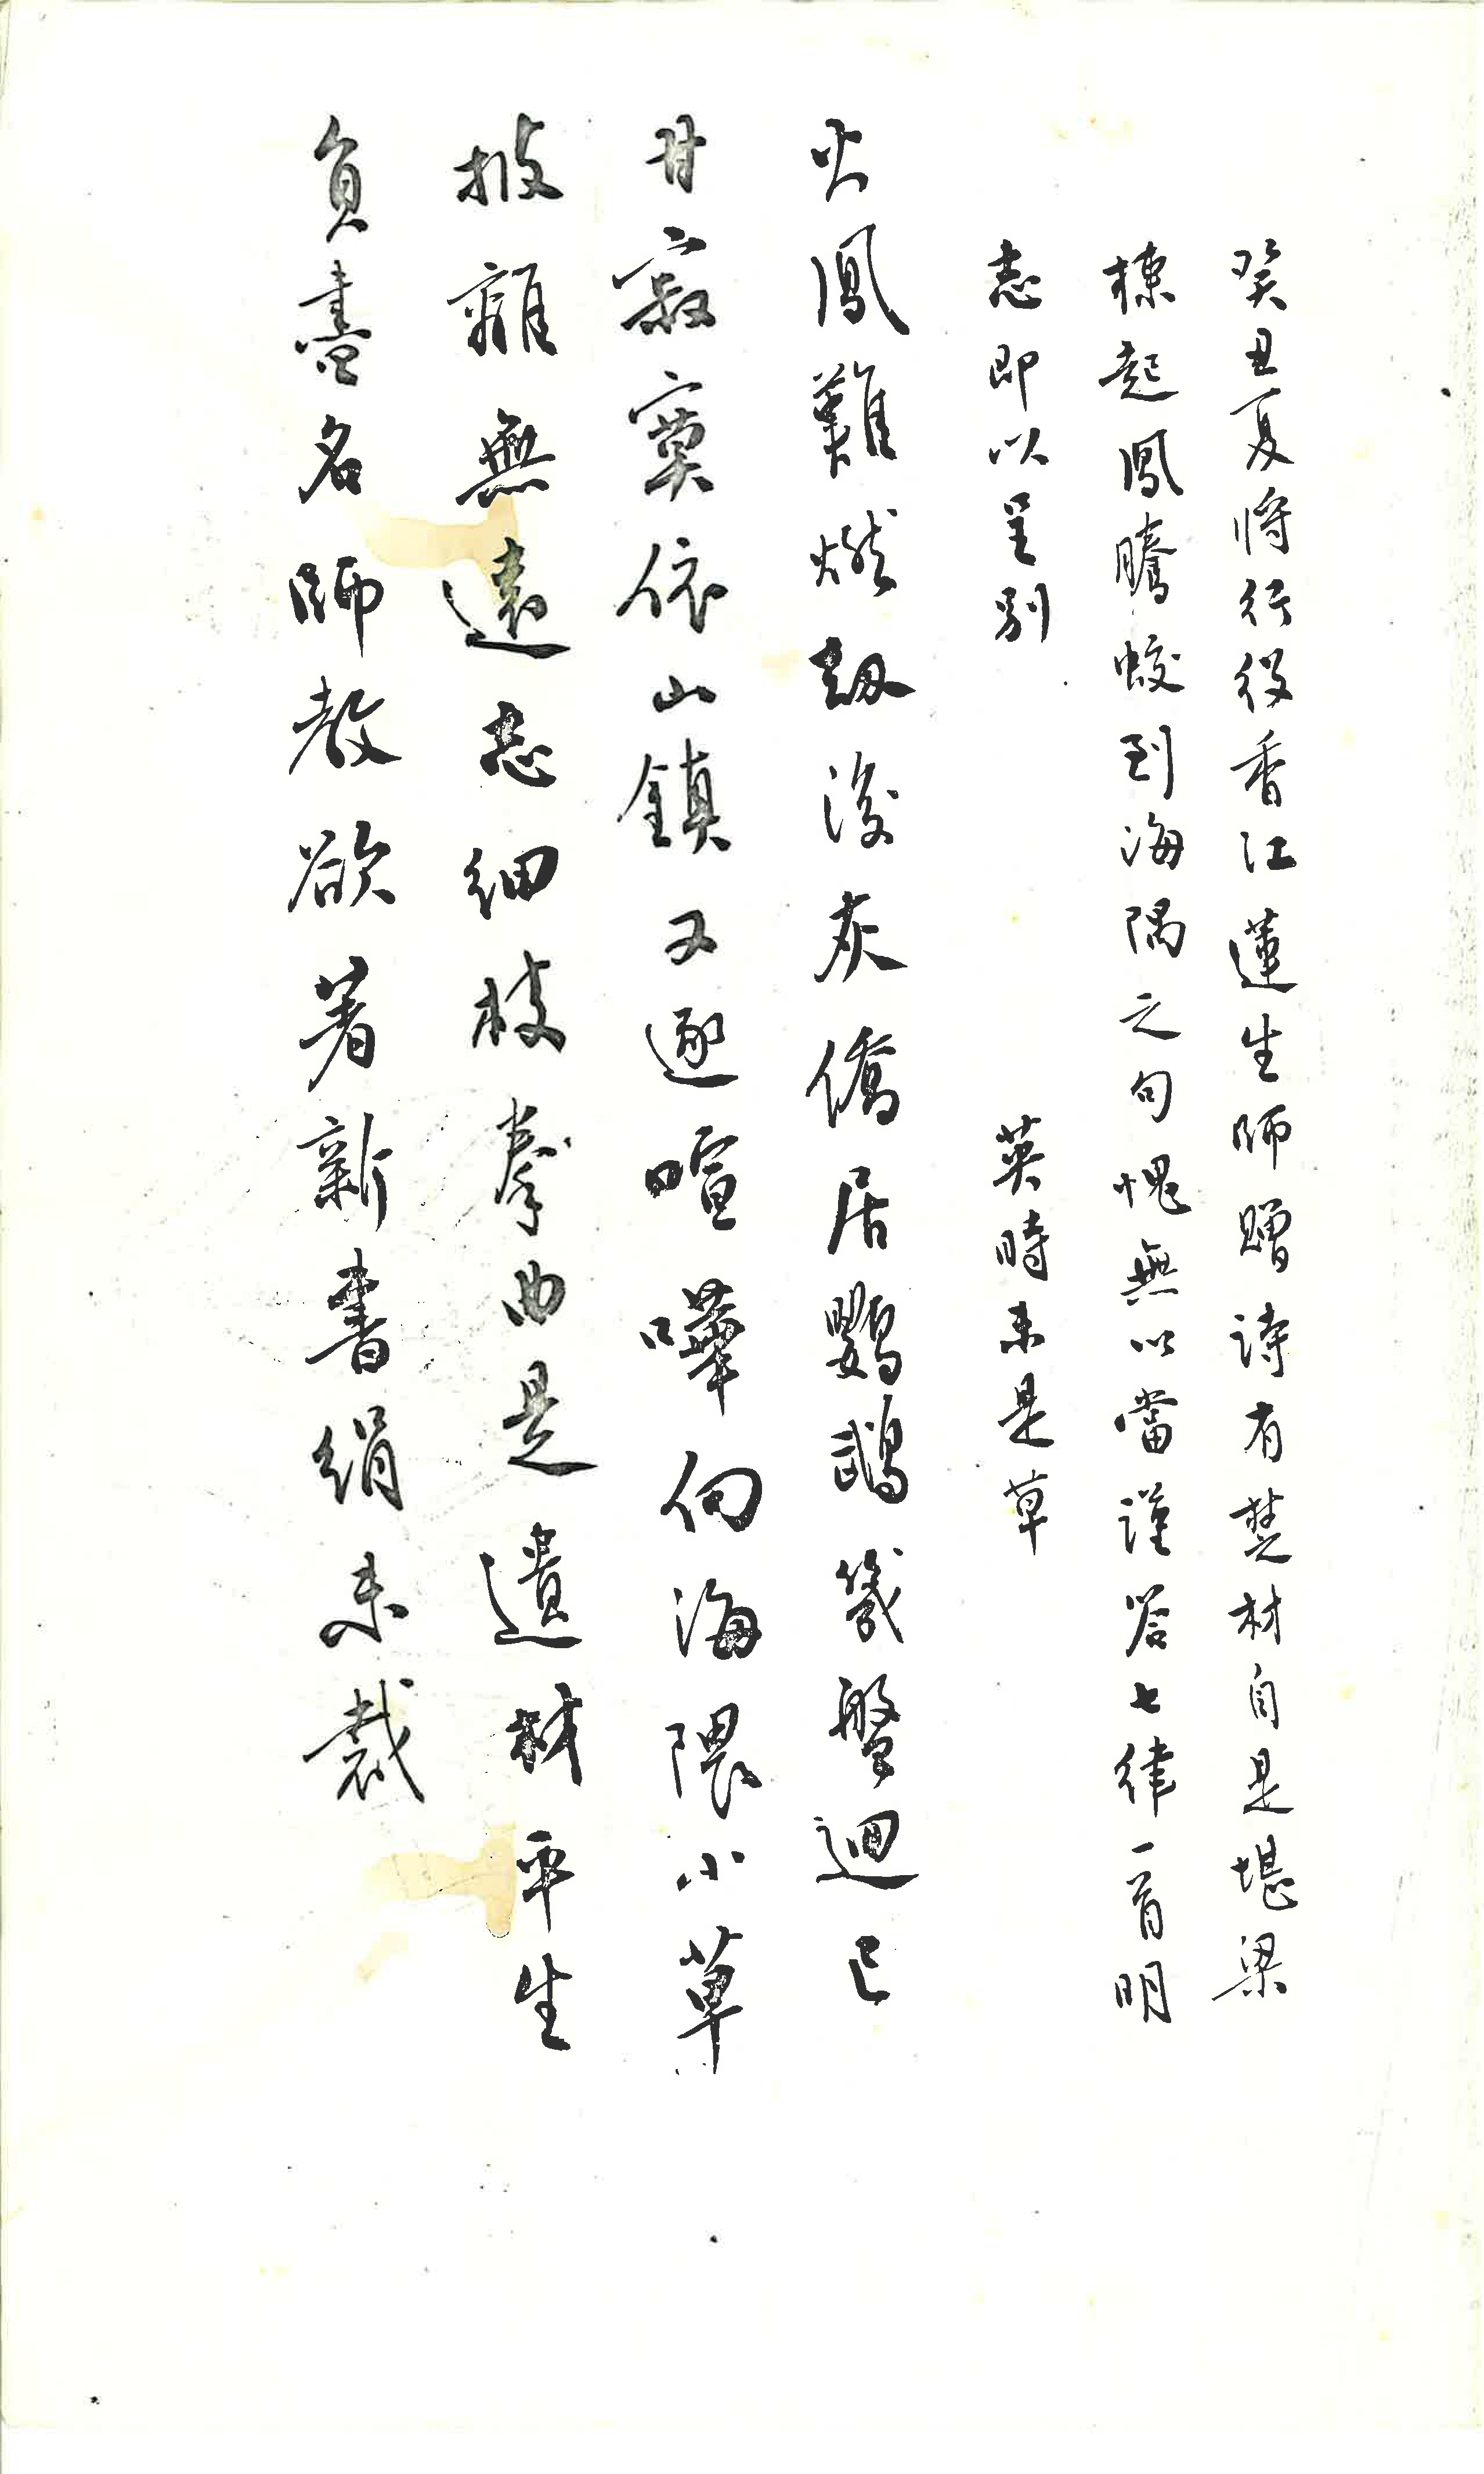 癸丑夏將行役香江蓮生師贈詩有楚材自是堪梁
棟起鳳騰蛟到海隅之句愧無以當謹答七律一首明
志即以呈別
英時未是草
火鳳難燃劫後灰僑居鸚鵡幾盤迴已
甘寂寞依山鎮又逐喧嘩向海隈小草
披離無遠志細枝拳曲是遺材平生
負盡名師教欲著新書絹未裁